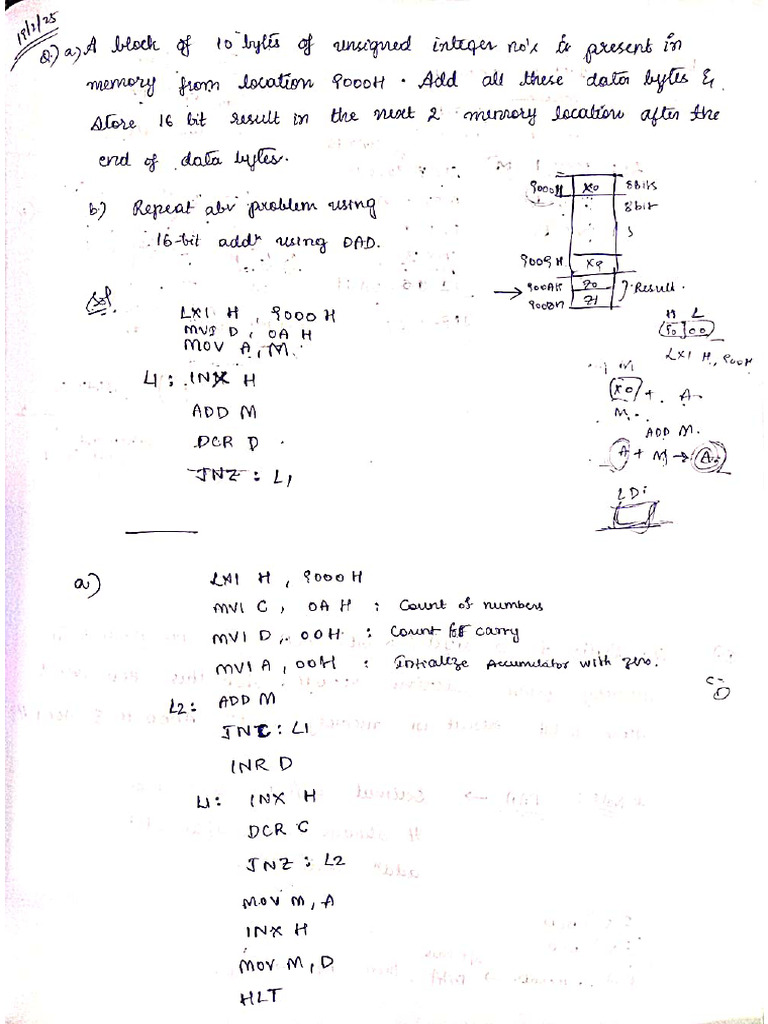 19/2/25
Q.) a) A block of 10 bytes of unsigned integer no's is present in
memory from location 9000H. Add all these data bytes &
store 16 bit result in the next 2 memory location after the
end of data bytes.
b.) Repeat abv problem using
16-bit addn using DAD.
9000H X0 8bits
8bit
9009H X9
900AH Z0
900BH Z1
} Result.
H L
90 00
LXI H, 900H
M
X0 + A
M.
ADD M.
A + M → A
LDi
Sol
LXI H, 9000H
MVI D, 0A H
MOV A, M.
L1: INX H
ADD M
DCR D.
JNZ: L1
a)
LXI H, 9000H
MVI C, 0AH : Count of numbers
MVI D, 00H, : Count for carry
MVI A, 00H : Intialize Accumulator with zero.
L2: ADD M
JNC: L1
INR D
L1: INX H
DCR C
JNZ: L2
MOV M, A
INX H
MOV M, D
HLT